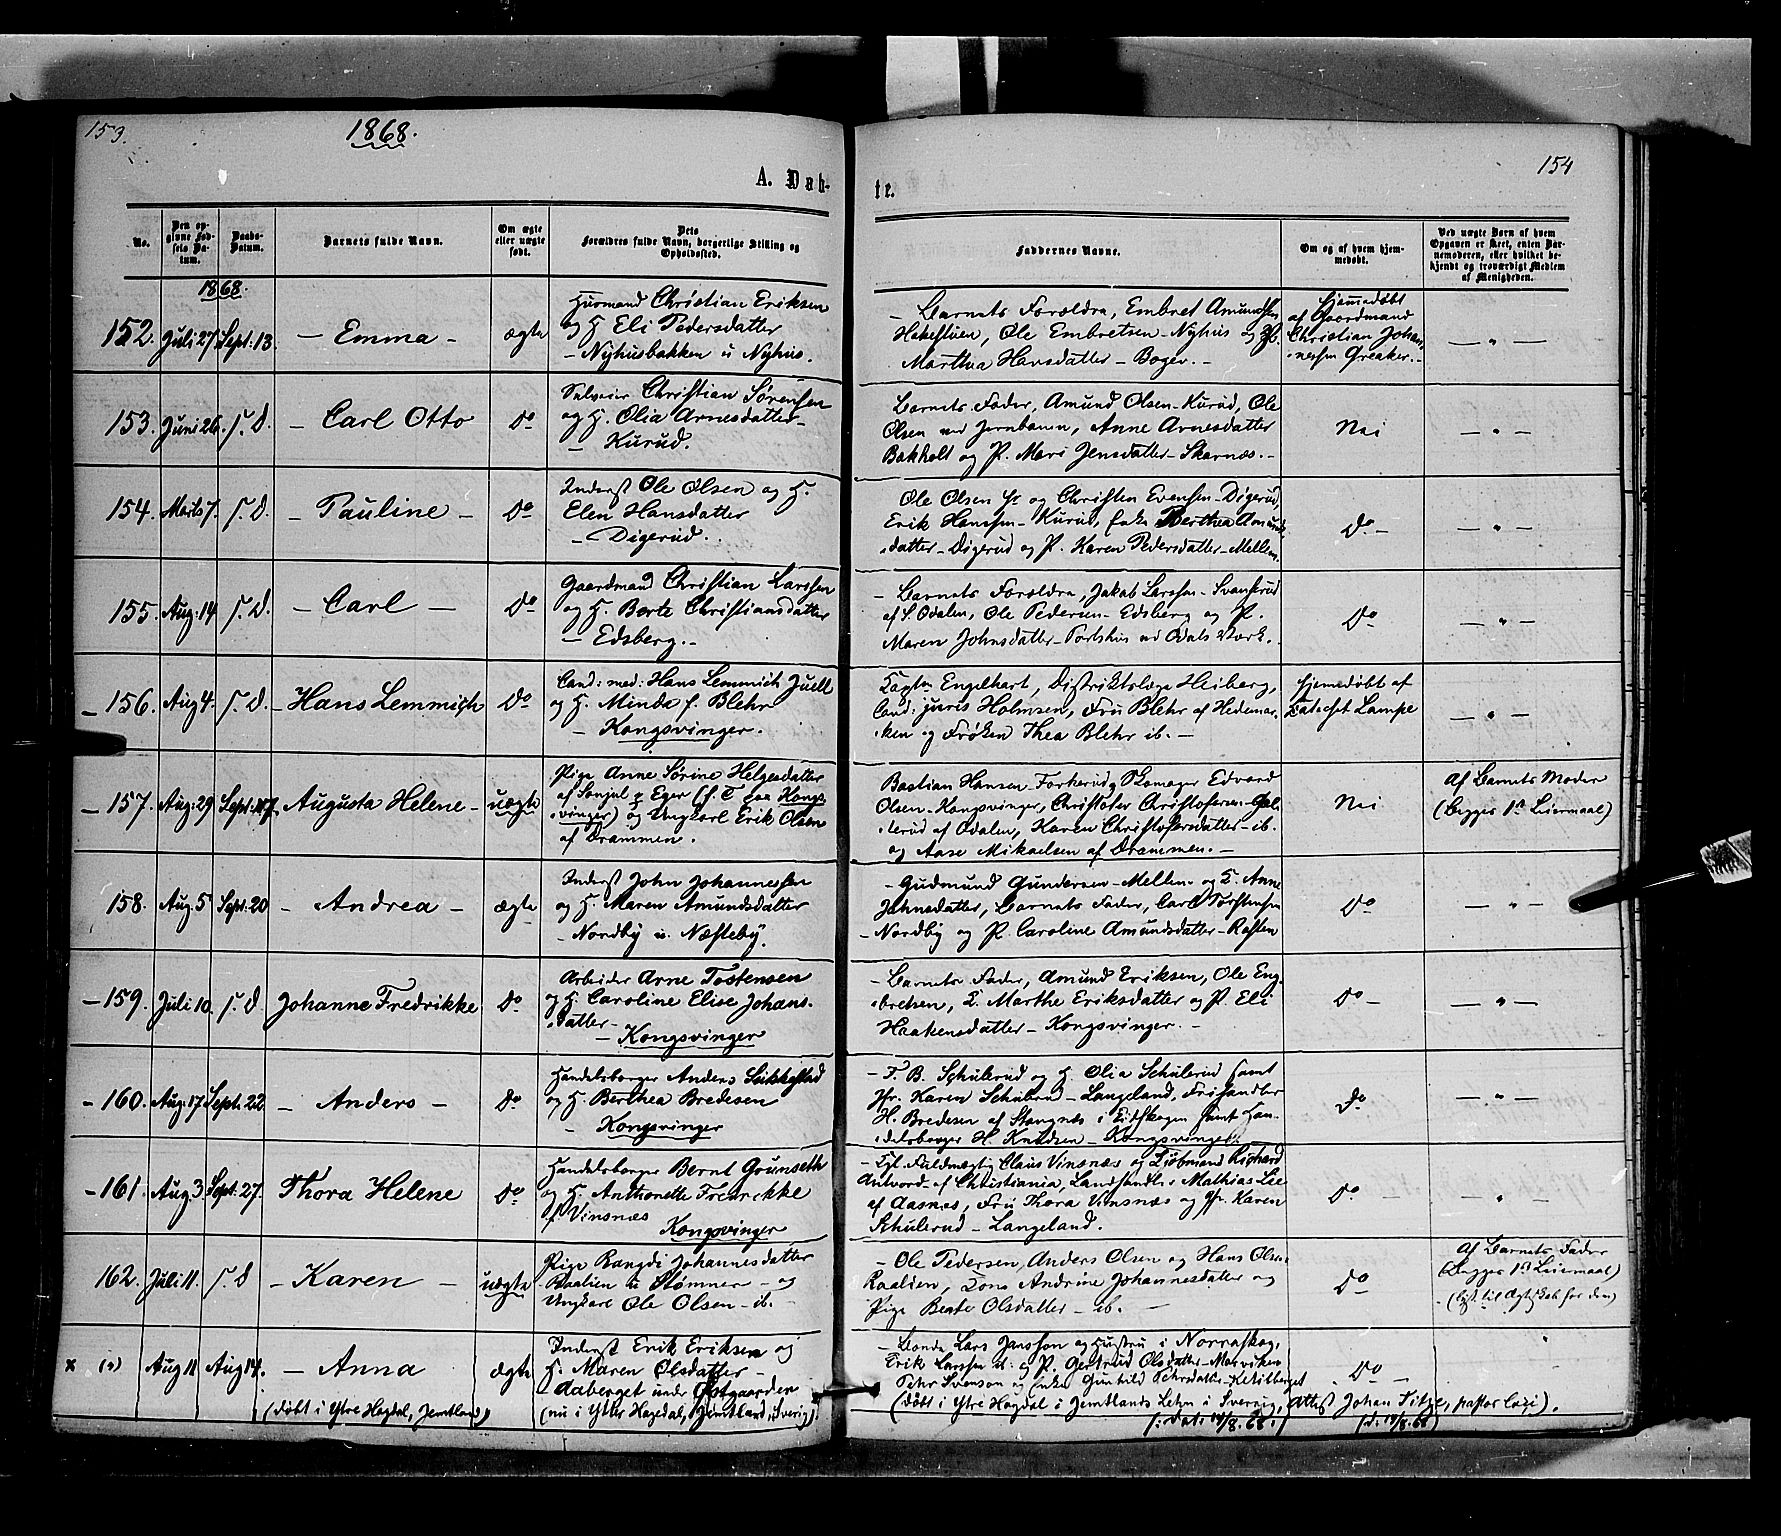 153.
1868.
154
A. Døb-
te.
No.
Den opgivne Fødsels Datum.
Daabs-Datum.
Barnets fulde Navn.
Om ægte eller uægte født.
Dets Forældres fulde Navn, borgerlige Stilling og Opholdssted.
Faddernes Navne.
Om og af hvem hjemmedøbt.
Ved uægte Børn af hvem Opgaven er skeet, enten Barnemoderen, eller hvilket bekjendt og troværdigt Medlem af Menigheden.
1868.
152. Juli 27. Sept. 13. – Emma – ægte
Husmand Christian Eriksen
og H. Eli Pedersdatter
– Nyhusbakken u Nyhus.
– Barnets Forældre, Embret Amundsen
Ole Embretsen – Nyhus og P.
Marthea Hansdatter – Boger. –
Hjemmedøbt
af Gaardmand
Christian Johan-
nessen Greaker. –
— " —
153. Juni 26. s. D. – Carl Otto do
Christian Sørensen
og H. Olia Arnesdatter –
– Kurud.
Barnets Fader, Amund Olsen – Kurud, Ole
Olsen ved Jernbanen, Anne Arnesdatter
Bakholt og P. Mari Jensdatter – Skarnæs. –
Nei
— " —
154. Marts 7. s. D. – Pauline – do
Inderst Ole Olsen og H.
Elen Hansdatter
– Digerud.
Ole Olsen og Christen Evensen – Digerud,
Erik Hanssen – Kurud, Enke Berthea Amunds-
datter – Digerud og P. Karen Pedersdatter – Mellem.
do –
— " —
155. Aug. 14 s. D. – Carl – do
Gaardmand Christian Larssen
og H. Berte Christiansdatter
– Edsberg. –
– Barnets Forældre, Jakob Larssen –
af S. Odalen, Ole Pedersen – Edsberg og P.
Maren Johnsdatter – ved Odals Værk.
do
— " —
– 156. Aug 4. s. D. – Hans Lemmich do
Cand: med: Hans Lemmich Juell
og H. Minda f. Blehr
– Kongsvinger.
Capt. Engelhart, Distriktslæge Heiberg,
Cand: juris Holmsen, Fru Blehr af Hedemar-
ken og Frøken Thea Blehr ib. –
Hjemmedøbt af
Catechet Lampe
— " —
– 157. Aug. 29. Sept. 17. Augusta Helene – uægte
Pige Anne Sørine Helgesdatter
af Eger (f. T. paa Kongs-
vinger) og Ungkarl Erik Olsen
af Drammen.
Bastian Hansen – Skomager Edvard
Olsen – Kongsvinger, Christofer Christofersen –
af Odalen, Karen Christofersdatter – ib.
og Aase Mikaelsen af Drammen. –
Nei
Af Barnets Moder
(Begges 1ste Leiermaal)
158. Aug. 5 Sept. 20 – Andrea – ægte
Inderst John Johannessen
og H. Maren Amundsdatter
– Nordby u. Næsteby.
– Gudmund Gundersen – Mellem og Anne
Johnsdatter, Barnets Fader, Carl Torstensen
– Nordby og P. Caroline Amundsdatter – Rasten
do
— " —
– 159. Juli 10. s. d Johanne Fredrikke do
Arbeider Arne Tostensen
og H. Caroline Elise Johans-
datter –
– Kongsvinger
– Barnets Fader, Amund Eriksen, Ole Eng-
bretsen, Marthe Eriksdatter og P. Eli
Haakensdatter – Kongsvinger. –
do –
— " —
– 160. Aug. 17 Sept. 22 – Anders – do
Handelsborger Anders Sikkestad
og H. Berthea Bredesen
– Kongsvinger
– T. B. Schulerud og H. Olia Schulerud samt
Jfr. Karen Schulerud – Langeland,
H. Bredesen af Stangnæs i Eidskogen samt Han-
delsborger H. Knudsen – Kongsvinger.
do
— " —
– 161. Aug. 3 Sept. 27. Thora Helene do
Handelsborger Bernt Grunseth
og H. Anthonette Fredrikke
af Vinsnæs
Kongsvinger
– Kgl. Fuldmægtig Claus Vinsnæs og Richard
af Christiania, Landhandler Mathias Lie
af Aasnæs, Fru Thora Vinsnæs og Jfr. Karen
Schulerud – Langeland.
do
"
162. Juli 11. s. D – Karen – uægte
Pige Bangdi Johannesdatter
u Strømner – og
Ungkarl Ole Olsen – ib. –
– Ole Pedersen, Anders Olsen og Hans Olsen
Kone Andrine Johannesdatter og
Pige Berte Olsdatter – ib. –
do
Af Barnets Fader
(Begges 1ste Leiermaal)
(lyst til Ægteskab for dem)
x Aug 11 Aug 14. – Anna ægte
(døbt i Ytre Hogdal, Jemtland)
Inderst Erik Eriksen og
H. Maren Olsdatter –
– Aaberget under Østgaarden
(nu i Ytter Hogdal, Jemtland, Sverig).
– Bonde Lars Jansson og Hustru i Norraskog,
Erik Larssen og P. Gertrud Olsdatter –
Pehr Svenson og Enke Gunhild Pehrsdatter –
(døbt i Ytre Hogdal i Jemtlands Lehn i Sverrig, attest Johan pastor loci).
(: dat: 14/8. 68:)
(d. 14/8. 68)
do –